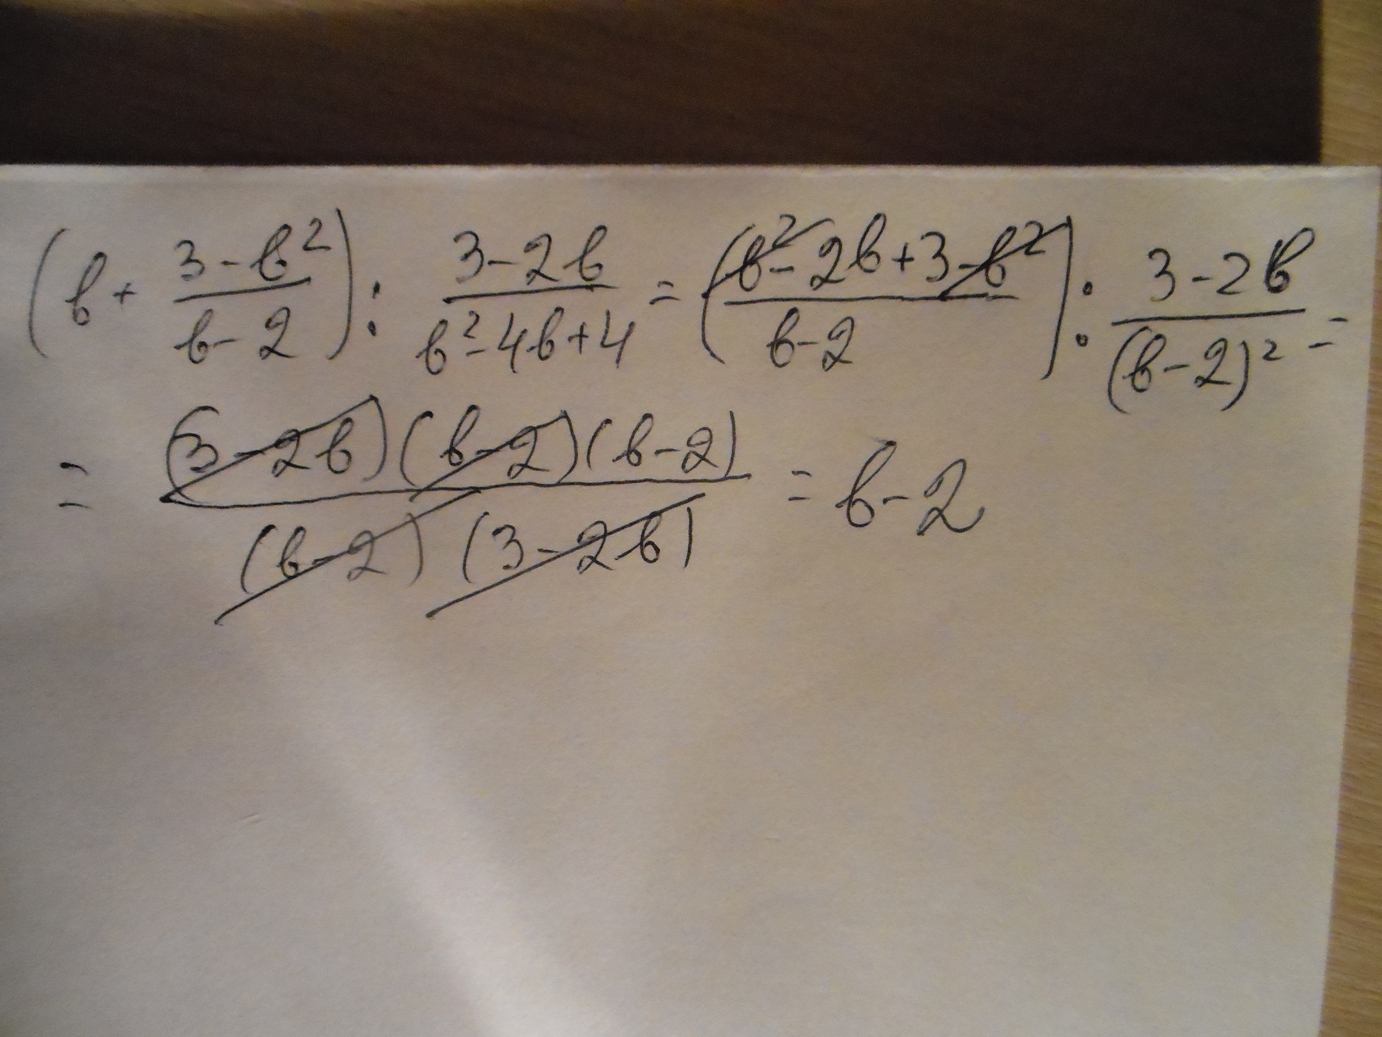 (b + (3-b²)/(b-2)) : (3-2b)/(b²-4b+4) = ((b²-2b+3-b²)/(b-2)) : (3-2b)/(b-2)² =
= ((3-2b)(b-2)(b-2))/((b-2)(3-2b)) = b-2